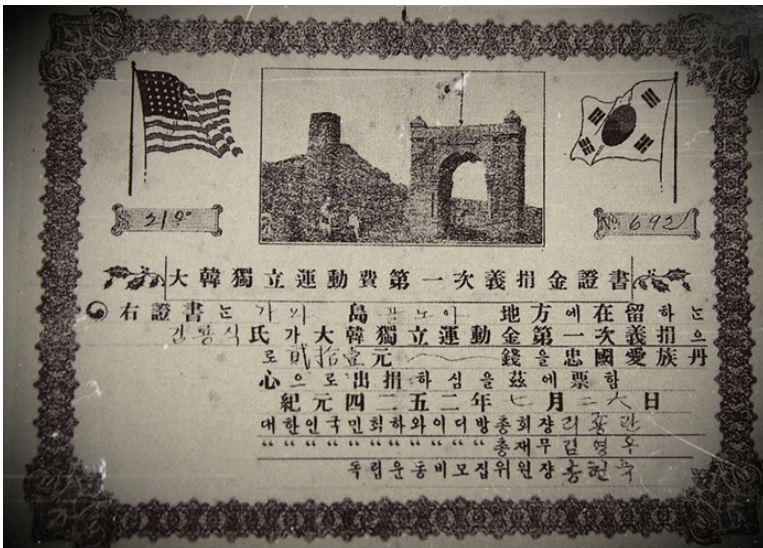 $ 21.00
No. 692
大韓獨立運動費第一次義捐金證書
右證書는 가와 島 地方에在留하는
氏가大韓獨立運動金第一次義捐으
로貳拾壹元 錢을忠國愛族丹
心으로出捐하심을玆에票함
紀元四二五二年七月二六日
대한인국민회하와이디방총회쟝리
〃〃〃〃〃〃〃〃〃〃총재무김영우
독립운동비모집위원쟝홍현